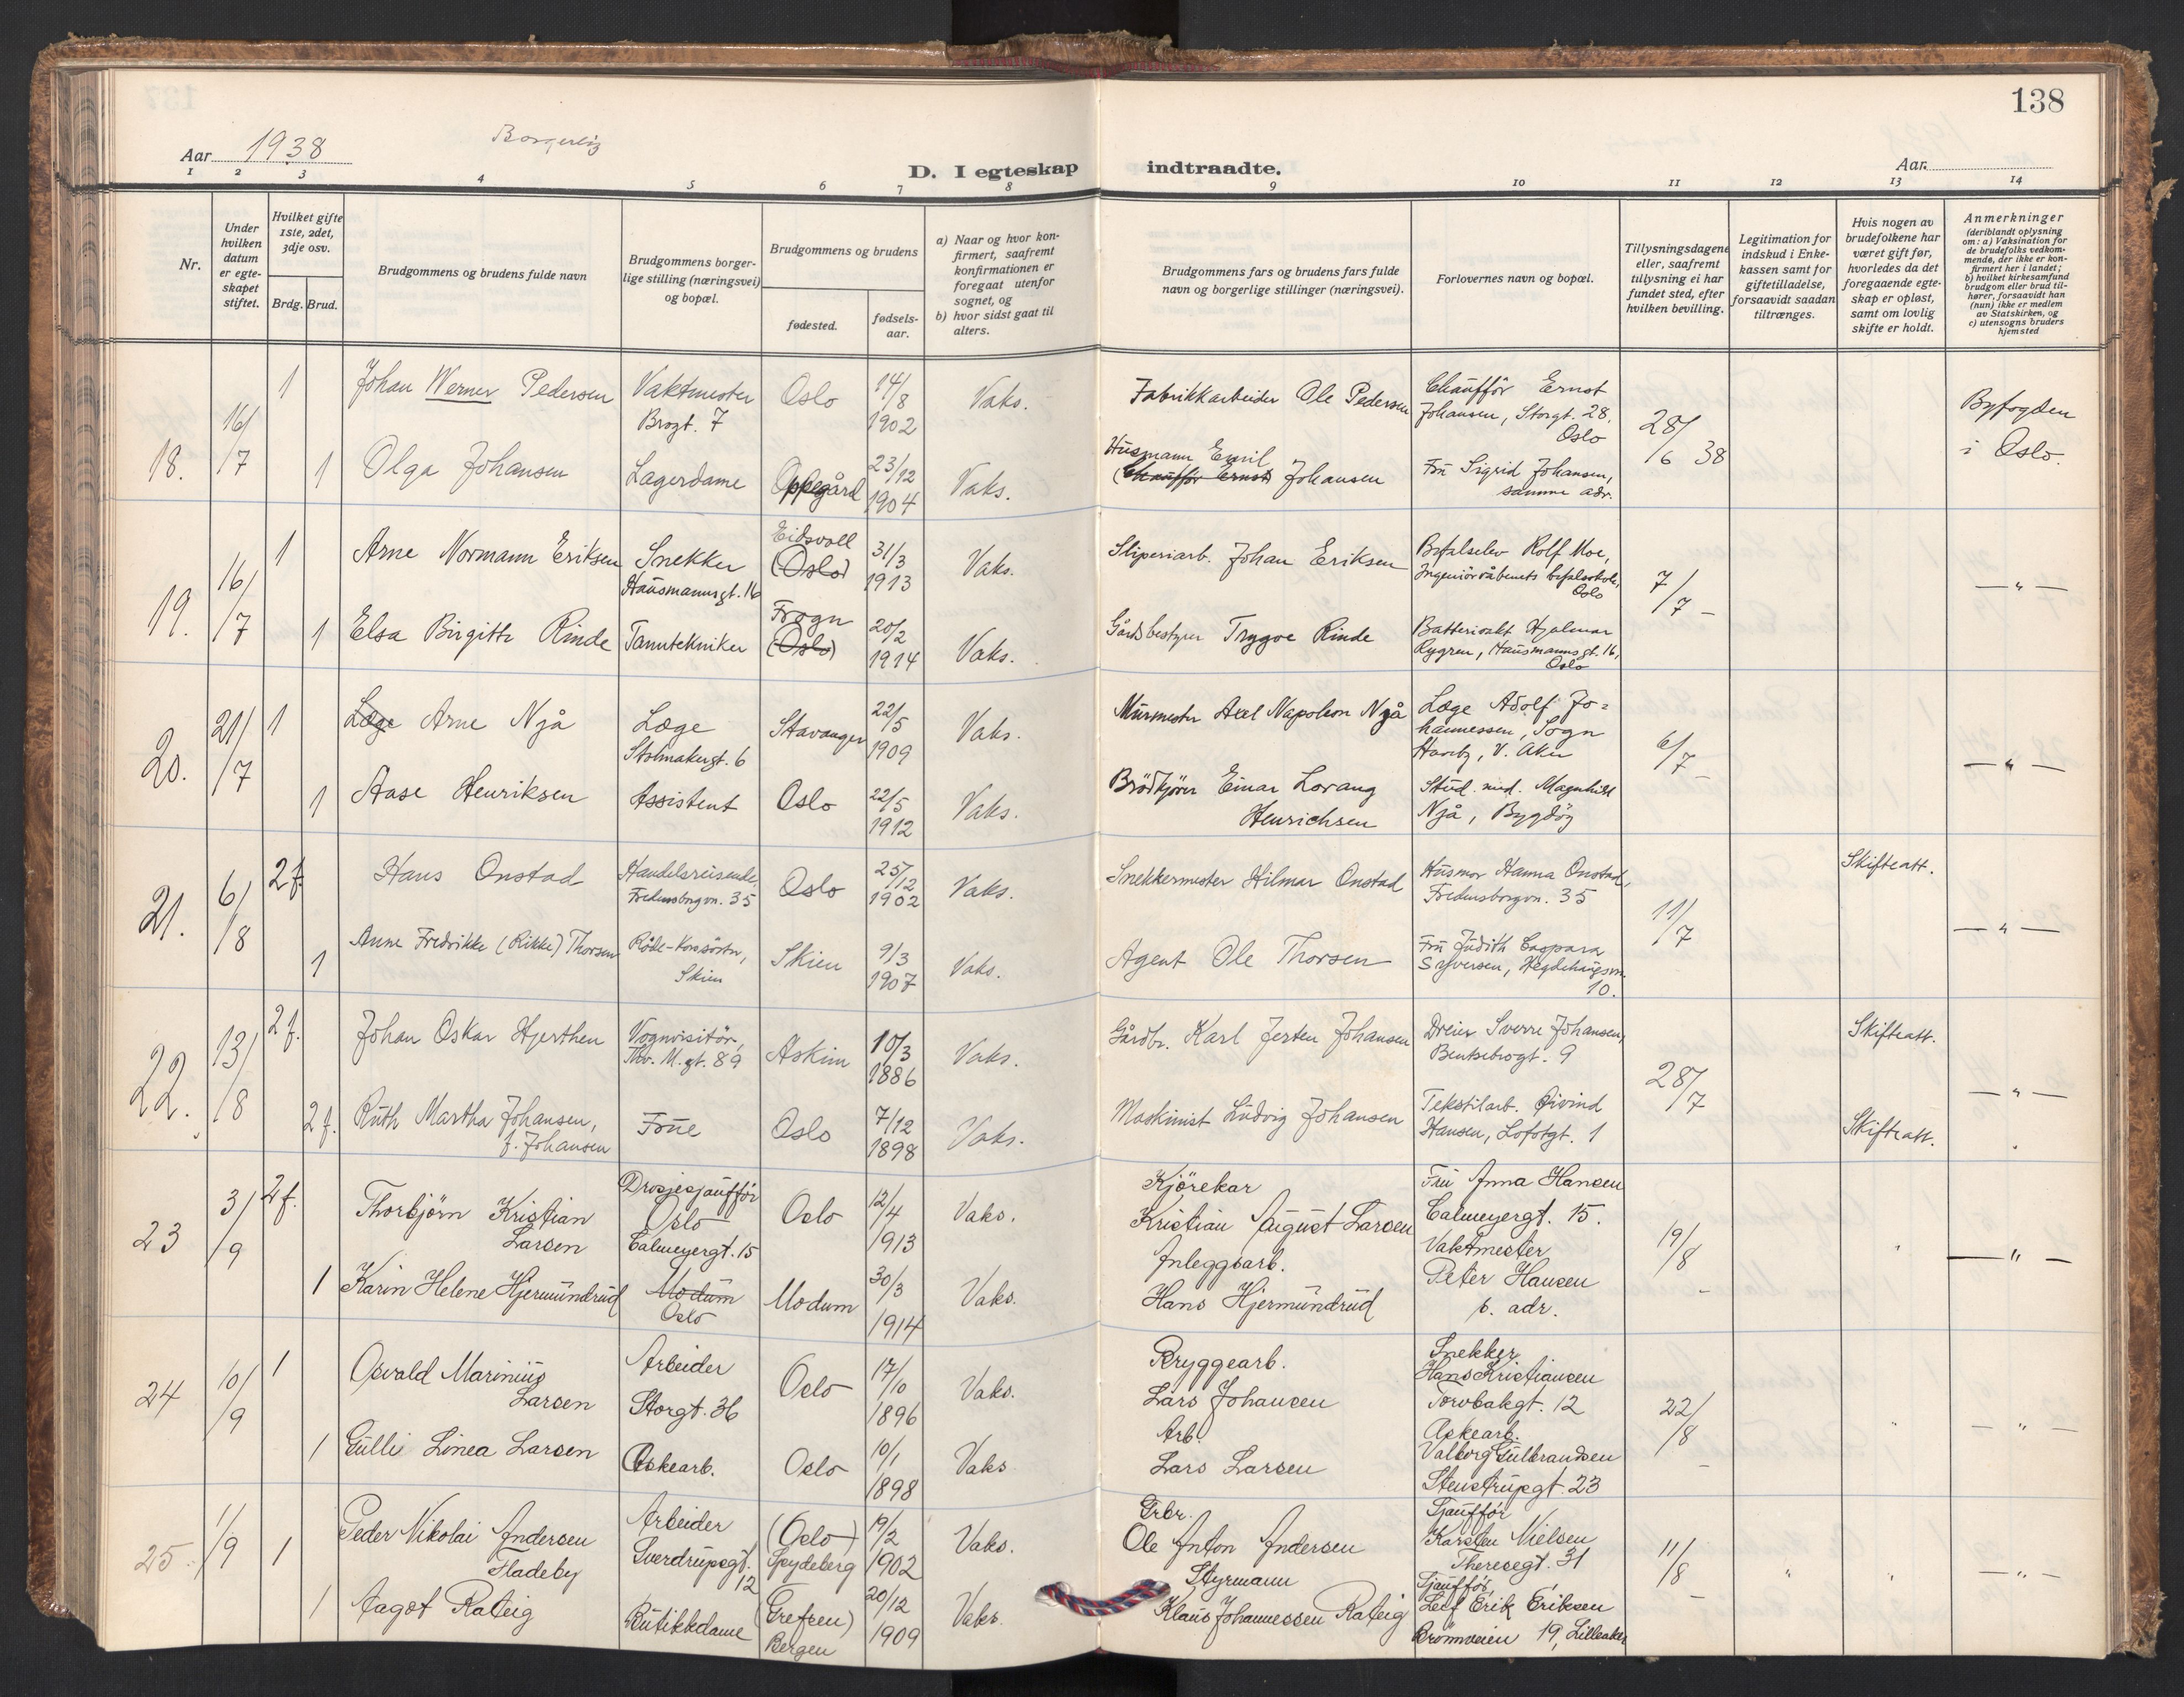 138
Aar 1938
Borgerlig
D. I egteskap indtraadte.
Aar
1 2 3 4 5 6 7 8 9 10 11 12 13 14
Nr.
Under hvilken datum er egteskapet stiftet.
Hvilket gifte 1ste, 2det, 3dje osv.
Brdg. Brud.
Brudgommens og brudens fulde navn
Brudgommens borgerlige stilling (næringsvei) og bopæl.
Brudgommens og brudens
fødested.
fødselsaar.
a) Naar og hvor konfirmert, saafremt konfirmationen er foregaat utenfor sognet, og
b) hvor sidst gaat til alters.
Brudgommens fars og brudens fars fulde navn og borgerlige stillinger (næringsvei).
Forlovernes navn og bopæl.
Tillysningsdagene eller, saafremt tillysning ei har fundet sted, efter hvilken bevilling.
Legitimation for indskud i Enkekassen samt for giftetilladelse, forsaavidt saadan tiltrænges.
Hvis nogen av brudefolkene har været gift før, hvorledes da det foregaaende egteskap er opløst, samt om lovlig skifte er holdt.
Anmerkninger (deriblandt oplysning om: a) Vaksination for de brudefolks vedkommende, der ikke er konfirmert her i landet; b) hvilket kirkesamfund brudgom eller brud tilhører, forsaavidt han (hun) ikke er medlem av Statskirken, og c) utensogns bruders hjemsted
18. 16/7 1 Johan Werner Pedersen Vaktmester Brogt. 7 Oslo 14/8 1902 Vaks. Fabrikkarbeider Ole Pedersen Chaufför Ernst Johansen, Storgt. 28, Oslo 28/6 38 Byfogden i Oslo.
1 Olga Johansen Lagerdame Oppegård 23/12 1904 Vaks. Husmann Emil (Chaufför Ernst) Johansen Fru Sigrid Johansen, samme adr.
19. 16/7 1 Arne Normann Eriksen Snekker Hausmannsgt. 16 Eidsvoll (Oslo) 31/3 1913 Vaks. Sliperiarb. Johan Eriksen Befalselev Rolf Moe, Ingeniörvåbenets befalsskole, Oslo 7/7 - — " —
1 Elsa Birgitte Rinde Tanntekniker Frogn (Oslo) 20/2 1914 Vaks. Gårdsbestyrer Trygve Rinde Batterivakt Hjalmar Rygren, Hausmannsgt. 16, Oslo
20. 21/7 1 Læge Arne Njå Læge Stolmakergt. 6 Stavanger 22/5 1909 Vaks. Murmester Axel Napoleon Njå Læge Adolf Johannessen, Sogn Haveby, V. Aker 6/7 - — " —
1 Aase Henriksen Assistent Oslo 22/5 1912 Vaks. Brödkjörer Einar Lorang Henrichsen Stud. med. Magnhild Njå, Bygdöy
21. 6/8 2 f. Hans Onstad Handelsreisende, Fredensborgvn. 35 Oslo 25/12 1902 Vaks. Snekkermester Hilmar Onstad Husmor Hanna Onstad, Fredensborgvn. 35 11/7 Skifteatt. — " —
1 Anne Fredrikke (Rikke) Thorsen Röde-Korssöster, Skien Skien 9/3 1907 Vaks. Agent Ole Thorsen Fru Judith Caspara Syversen, Hegdehaugsvn. 10.
22. 13/8 2 f. Johan Oskar Hjerthen Vognvisitör, Thv. M. gt. 89 Askim 10/3 1886 Vaks. Gårdbr. Karl Jerten Johansen Dreier Sverre Johansen, Bentsebrogt. 9 28/7 Skifteatt. — " —
2 f. Ruth Martha Johansen, f. Johansen Frue Oslo 7/12 1898 Vaks. Maskinist Ludvig Johansen Tekstilarb. Øivind Hansen, Lofotgt. 1 Skifteatt.
23 3/9 2 f. Thorbjörn Kristian Larsen Drosjesjaufför Oslo Calmeyergt. 15 Oslo 12/4 1913 Vaks. Kjörekar Kristian August Larsen Fru Anna Hansen Calmeyergt. 15. 19/8 - — " —
1 Karin Helene Hjermundrud Modum Oslo Modum 30/3 1914 Vaks. Anleggsarb. Hans Hjermundrud Vaktmester Peter Hansen s. adr.
24 10/9 1 Osvald Marinius Larsen Arbeider Storgt. 36 Oslo 17/10 1896 Vaks. Bryggearb. Lars Johansen Snekker Hans Kristiansen Torvbakgt. 12 22/8 - — " —
1 Gulli Linea Larsen Eskearb. Oslo 10/1 1898 Vaks Arb. Lars Larsen Eskearb. Valborg Gulbrandsen Stenstrupgt. 23
25. 1/9 1 Peder Nikolai Andersen Fladeby Arbeider Sverdrupsgt. 12 (Oslo) Spydeberg 19/2 1902 Vaks. Grbr. Ole Anton Andersen Sjauffør Karsten Nielsen Theresegt. 31 11/8 - — " —
1 Aagot Rateig Butikkdame (Grefsen) Bergen 20/12 1909 Vaks. Styrmann Klaus Johannessen Rateig Sjauffør Leif Erik Eriksen Brönnveien 19, Lilleaker